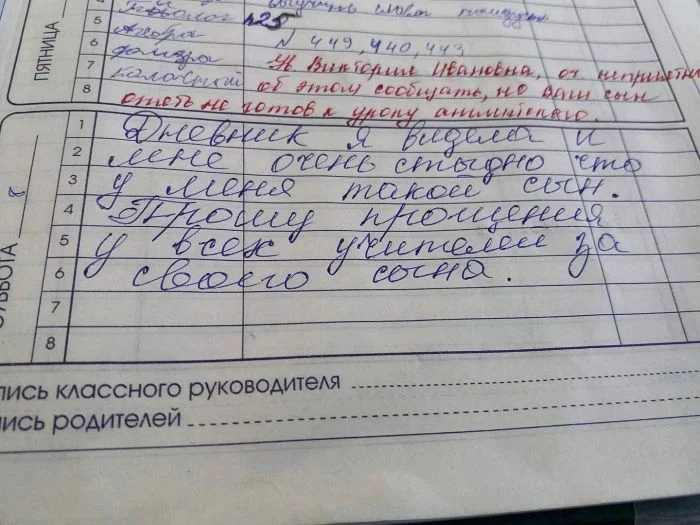 выучить слова
ПЯТНИЦА
5
6 № 449, 440, 443
7 Ув Виктория Ивановна, оч неприятно
8 об этом сообщать, но ваш сын
опять не готов к уроку английского.
СУББОТА
1 Дневник я видела и
2 мне очень стыдно что
3 у меня такой сын.
4 Прошу прощения
5 у всех учителей за
6 своего сына.
7
8
пись классного руководителя
пись родителей